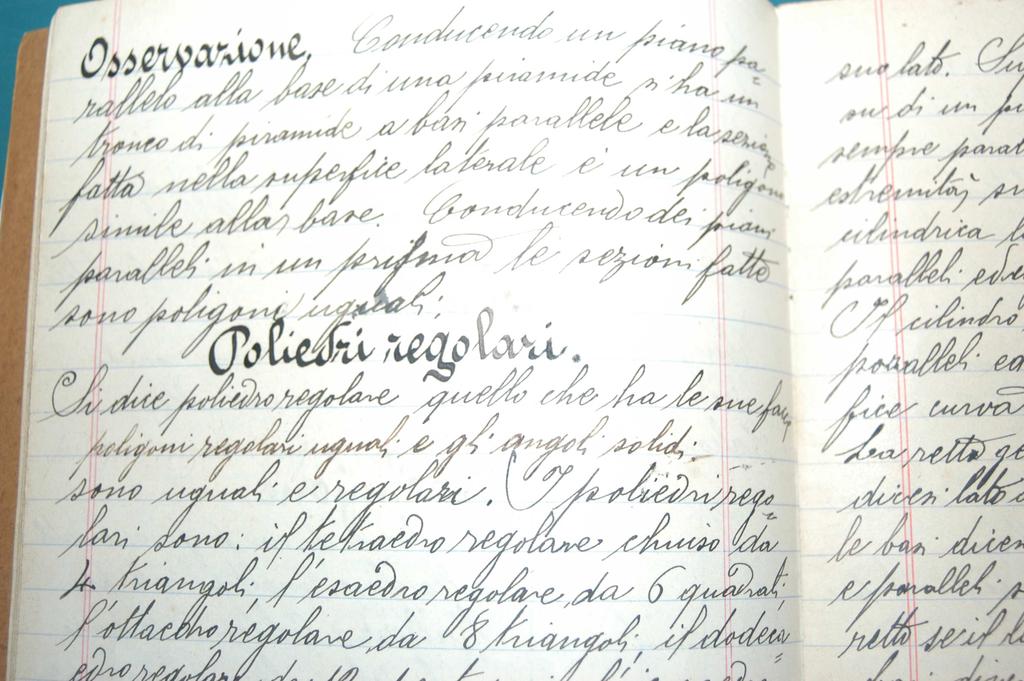 Osservazione. Conducendo un piano pa=
rallelo alla base di una piramide si ha un
tronco di piramide a basi parallele e la sezione
fatta nella superfice laterale è un poligono
simile alla base. Conducendo dei piani
paralleli in un prisma le sezioni fatte
sono poligoni uguali.
Poliedri regolari.
Si dice poliedro regolare quello che ha le sue facc
poligoni regolari uguali e gli angoli solidi
sono uguali e regolari. I poliedri rego=
lari sono: il tetraedro regolare chiuso da
4 triangoli, l'esaedro regolare, da 6 quadrati,
l'ottaedro regolare, da 8 triangoli, il dodeca=
edro regolare da
suo lato. Su
su di un
sempre paral
estremità
cilindrica
paralleli
Il cilindro
paralleli
fice curva
La retta ge
dicesi lato
le basi dicen
e paralleli s
retto se il